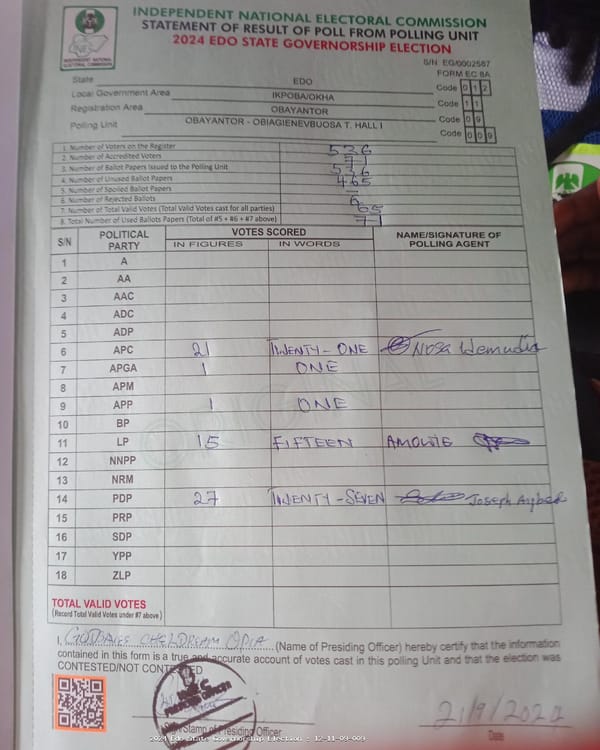 INDEPENDENT NATIONAL ELECTORAL COMMISSION
STATEMENT OF RESULT OF POLL FROM POLLING UNIT
2024 EDO STATE GOVERNORSHIP ELECTION
INDEPENDENT NATIONAL ELECTORAL COMMISSION
S/N EG/0002587
FORM EC 8A
State EDO Code 0 1 2
Local Government Area IKPOBA/OKHA Code 1 1
Registration Area OBAYANTOR Code 0 9
Polling Unit OBAYANTOR - OBIAGIENEVBUOSA T. HALL I Code 0 0 9
1. Number of Voters on the Register 536
2. Number of Accredited Voters 71
3. Number of Ballot Papers Issued to the Polling Unit 536
4. Number of Unused Ballot Papers 465
5. Number of Spoiled Ballot Papers –
6. Number of Rejected Ballots 6
7. Number of Total Valid Votes (Total Valid Votes cast for all parties) 65
8. Total Number of Used Ballots Papers (Total of #5 + #6 + #7 above) 71
S/N POLITICAL PARTY VOTES SCORED NAME/SIGNATURE OF POLLING AGENT
IN FIGURES IN WORDS
1 A
2 AA
3 AAC
4 ADC
5 ADP
6 APC 21 TWENTY-ONE Nosa Idemudia
7 APGA 1 ONE
8 APM
9 APP 1 ONE
10 BP
11 LP 15 FIFTEEN
12 NNPP
13 NRM
14 PDP 27 TWENTY-SEVEN Joseph
15 PRP
16 SDP
17 YPP
18 ZLP
TOTAL VALID VOTES
(Record Total Valid Votes under #7 above)
I, OPIA (Name of Presiding Officer) hereby certify that the information
contained in this form is a true and accurate account of votes cast in this polling Unit and that the election was
CONTESTED/NOT CONTESTED
Stamp of Presiding Officer
21/9/2024
Date
2024 Edo State Governorship Election : 12-11-09-009